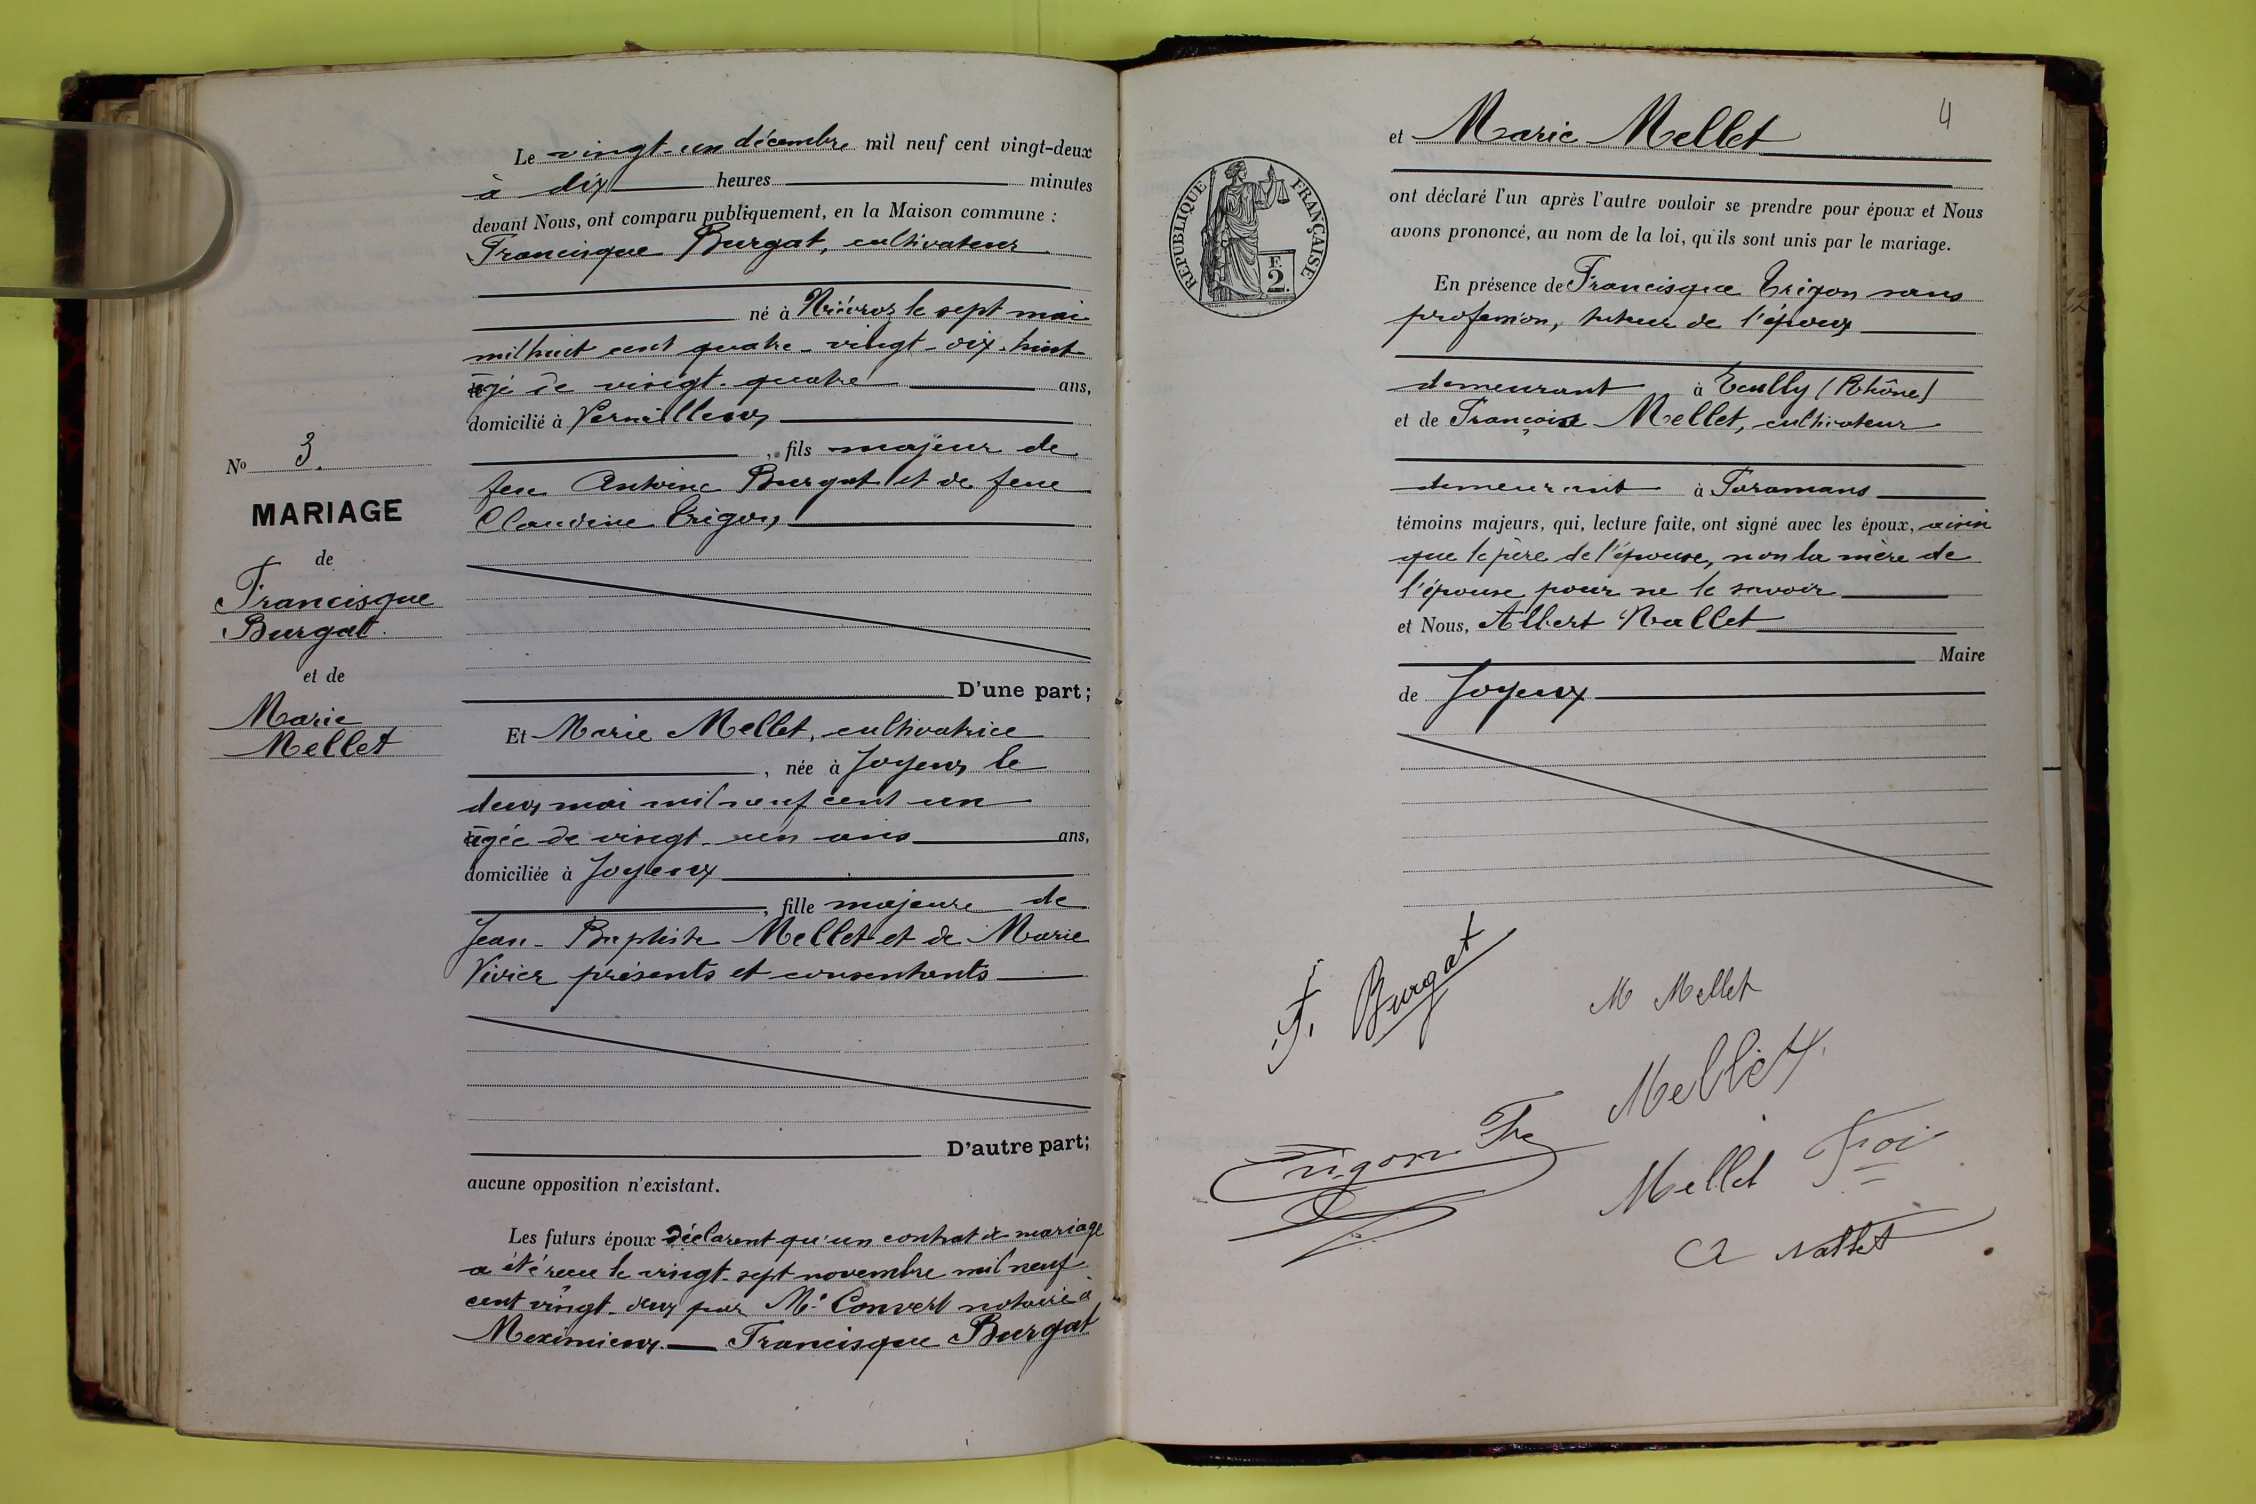 Le vingt-un décembre mil neuf cent vingt-deux
à dix heures minutes
devant Nous, ont comparu publiquement, en la Maison commune :
Francisque Burgat, cultivateur
né à Niévroz le sept mai
mil huit cent quatre-vingt-dix-huit
âgé de vingt-quatre ans,
domicilié à Versailleux
, fils majeur de
feu Antoine Burgat et de feue
Claudine Trigon
D'une part;
Et Marie Mellet, cultivatrice
, née à Joyeux le
deux mai mil neuf cent un
âgée de vingt-un ans ans,
domiciliée à Joyeux
, fille majeure de
Jean-Baptiste Mellet et de Marie
Vivier présents et consentants
D'autre part;
aucune opposition n'existant.
Les futurs époux déclarent qu'un contrat de mariage
a été reçu le vingt-sept novembre mil neuf
cent vingt-deux par Me Convert notaire à
Meximieux. Francisque Burgat
No 3.
MARIAGE
de
Francisque
Burgat.
et de
Marie
Mellet
4
RÉPUBLIQUE FRANÇAISE
2 F.
et Marie Mellet
ont déclaré l'un après l'autre vouloir se prendre pour époux et Nous
avons prononcé, au nom de la loi, qu'ils sont unis par le mariage.
En présence de Francisque Trigon sans
profession, tuteur de l'époux
demeurant à Ecully (Rhône)
et de François Mellet, cultivateur
demeurant à Faramans
témoins majeurs, qui, lecture faite, ont signé avec les époux, ainsi
que le père de l'épouse, non la mère de
l'épouse pour ne le savoir
et Nous, Albert Nallet
Maire
de Joyeux
F. Burgat
M Mellet
Mellet
Trigon Fr
Mellet Froi
A Nallet